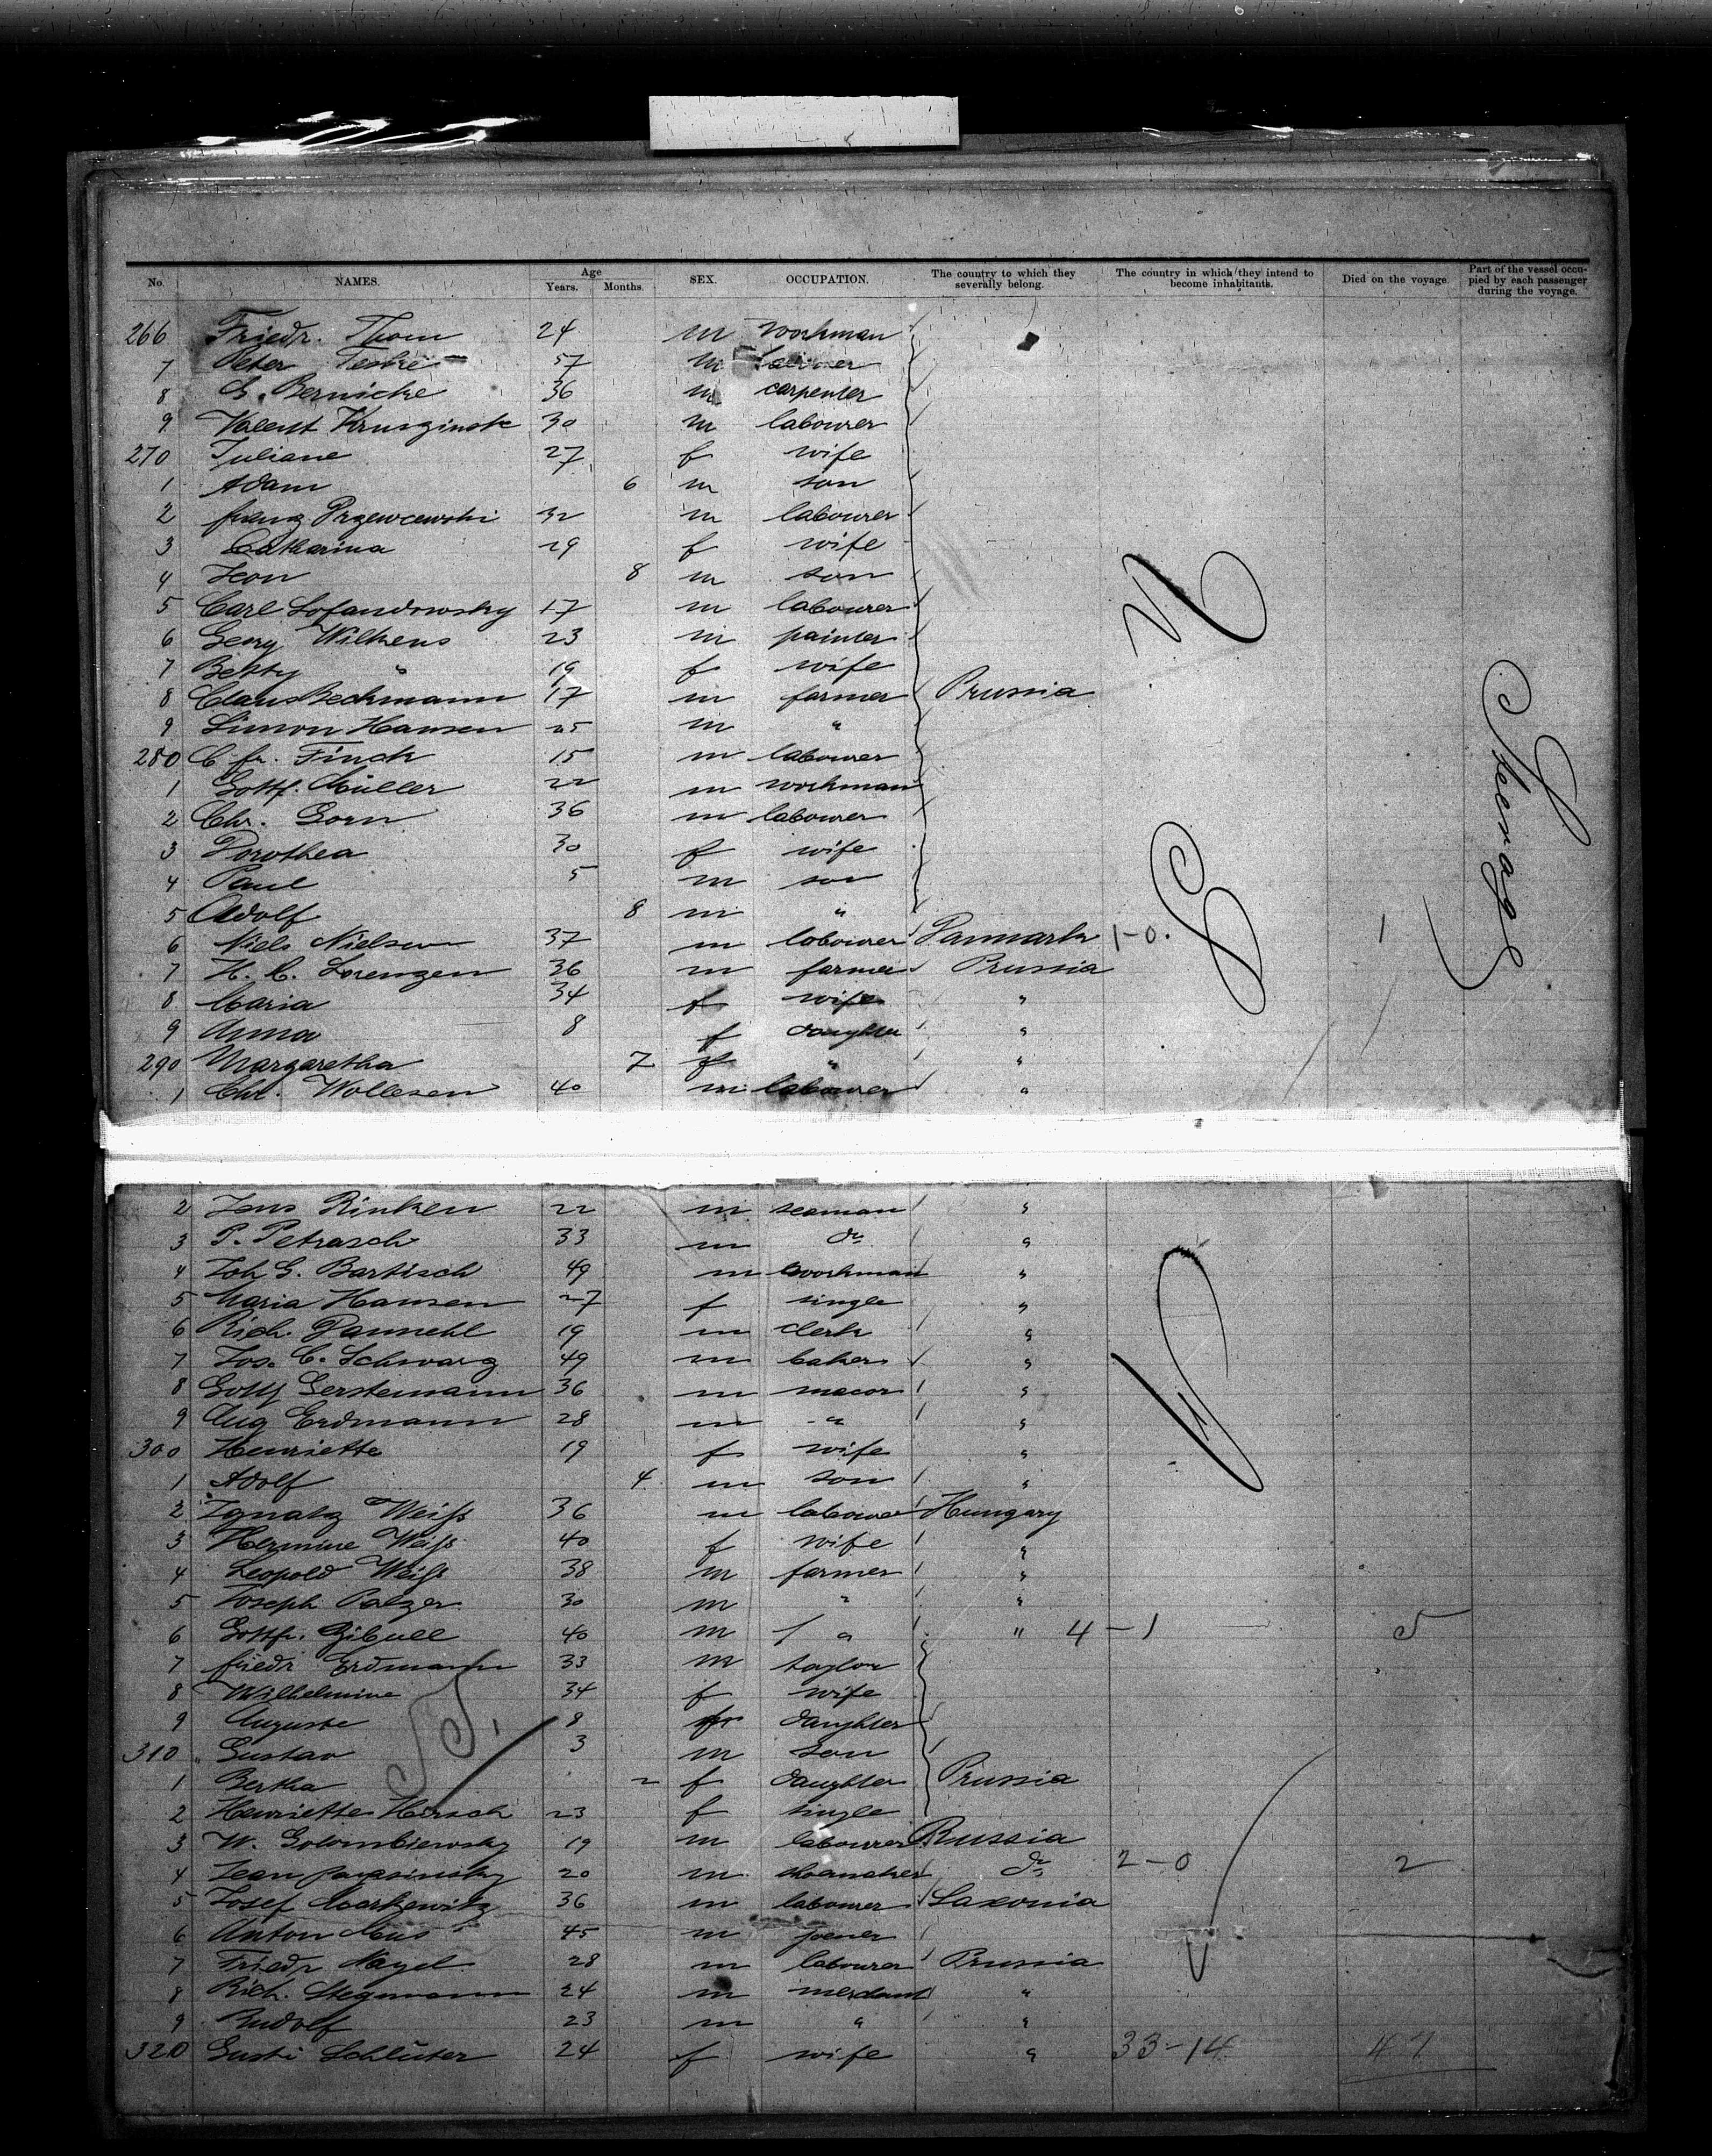 No. NAMES. Age Years. Months. SEX. OCCUPATION. The country to which they severally belong. The country in which they intend to become inhabitants. Died on the voyage. Part of the vessel occupied by each passenger during the voyage.
266 Friedr. Thom 24 m workman
7 Peter Teske 57 m
8 Bernicke 36 m carpenter
9 Valent 30 m labourer
270 Juliane 27 f wife
1 Adam 6 m son
2 32 m labourer
3 Catharina 29 f wife
4 8 m son
5 Carl 17 m labourer
6 Georg Wilkens 23 m painter
7 Betty " 19 f wife
8 Claus Bechmann 17 m farmer Prussia
9 Simon Hansen 25 m "
280 C. Fr. Finck 15 m labourer
1 Gottf. Müller 22 m workman
2 Chr. Gorn 36 m labourer
3 Dorothea 30 f wife
4 Paul 5 m son
5 Adolf 8 m "
6 Niels Nielsen 37 m labourer Danmark 1-0. 1
7 H. C. Lorenzen 36 m farmer Prussia
8 Maria 34 f wife "
9 Anna 8 f daughter "
290 Margaretha 7 f " "
1 Chr. Wollesen 40 m labourer "
U S
Steerage
2 Jens Rinken 22 m seaman "
3 P. Petrasch 33 m do "
4 Joh G. Bartisch 49 m workman "
5 Maria Hansen 27 f single "
6 Rich. Dannehl 19 m clerk "
7 Jos. C. Schwarz 49 m baker "
8 Gottf Gerstemann 36 m "
9 Aug Erdmann 28 m " "
300 Henriette 19 f wife "
1 Adolf 4 m son "
2 Ignatz Weiß 36 m labourer Hungary
3 Hermine Weiß 40 f wife "
4 Leopold Weiß 38 m farmer "
5 Joseph 30 m " "
6 Gottfr. 40 m " " 4-1 5
7 Friedr Erdmann 33 m taylor
8 Wilhelmine 34 f wife
9 Auguste 8 f daughter
310 Gustav 3 m son
1 Bertha 2 f daughter Prussia
2 Henriette Hirsch 23 f single
3 W. Golombiewsky 19 m labourer Russia
4 Jean 20 m shoemaker do 2-0 2
5 Josef Markewitz 36 m labourer Saxonia
6 Anton 45 m joener
7 Friedr Nagel 28 m labourer Prussia
8 Rich. Stegmann 24 m "
9 Rudolf 23 m " "
320 Gusti Schlüter 24 f wife " 33-14 47